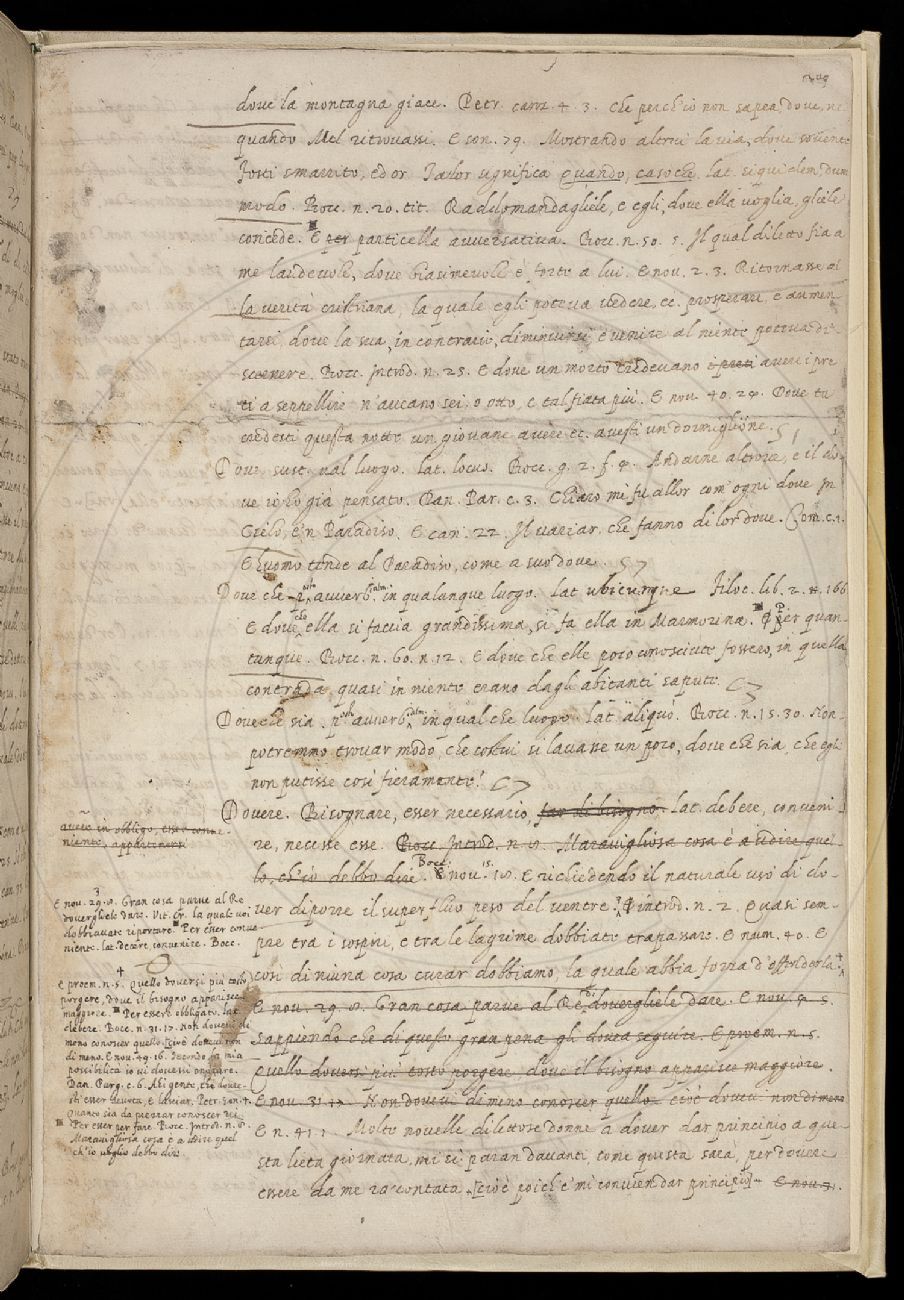 doue la montagna giace. Petr. canz. 4. 3. che perch'io non sapea doue, ne
quando Mel ritrouassi. E son. 79. Mostrando altrui la uia, doue souente
Fosti smarrito, ed or Talor significa Quando, casoche. lat. siquidem, dum
modo. Bocc. n. 20. tit. Raddomandagliele, e egli, doue ella uoglia, gliele
concede. E per particella auuersatiua. Bocc. n. 50. 5. Il qual diletto fia a
me laudeuole, doue biasimeuole è forte a lui. E nou. 2. 3. Ritornasse al
la uerità cristiana, la quale egli poteua uedere, ec. prosperare, e aumen
tarsi, doue la sua, in contrario, diminuirsi, e uenire al niente poteua di
scernere. Bocc. Introd. n. 25. E doue un morto credeuano i preti auere i pre
ti a seppellire n'aueano sei, o otto, e tal fiata più. E nou. 40. 24. Doue tu
credesti questa notte un giouane auere ec. auesti un dormiglione.
Doue, sust. ual luogo. lat. locus. Bocc. g. 2. f. 4. Andarne altroue, e il do-
ue io ho già pensato. Dan. Par. c. 3. Chiaro mi fu allor com'ogni doue In
Cielo, è'n Paradiso. E can. 22. Il uariar, che fanno di lor doue. Com. c. 1.
E l'uomo tende al Paradiso, come a suo doue.
Doue che auuerb. in qualunque luogo. lat. ubicunque Filoc. lib. 2. 166
E doue che ella si faccia grandissima, si fa ella in Marmorina. Per quan-
tunque. Bocc. n. 60. n. 12. E doue che elle poco conosciute fossero, in quella
contrada, quasi in niente erano dagli abitanti sapute.
Doueche sia, auuerb. in qual che luogo. lat. aliquò. Bocc. n. 15. 30. Non
potremmo trouar modo, che costui si lauasse un poco, doue che sia, che egli
non putisse così fieramente?
Douere. Bisognare, esser necessario, far di bisogno. lat. debere, conueni
re, necesse esse. Bocc. Introd. n. 8. Marauigliosa cosa è a udire quel
lo, ch'io debbo dire. Bocc. nou. 15. E richiedendo il naturale uso di do-
uer diporre il superfluo peso del uentre. introd. n. 2. Quasi sem-
pre tra i sospiri, e tra le lagrime dobbiate trapassare. E num. 40. E
così di niuna cosa curar dobbiamo, la quale abbia forza d'offenderla.
E nou. 29. 8. Gran cosa parue al Re di douergliele dare. E nou. 5.
sappiendo che di questo gran pena gli douea seguire. E proem. n. 5.
Quello douersi più tosto porgere doue il bisogno apparisce maggiore.
E nou. 31. 17. Non doueui dimeno conoscer quello cioè doueui non dimeno
E n. 41. 1. Molte nouelle dilettose donne a douer dar principio a que-
sta lieta giornata, mi si paran dauanti, come questa sarà, per douere
essere da me raccontata [cioè poiche mi conuien dar principio] E nou. 31.
auere in obbligo, esser conue-
niente, appartenersi
3
E nou. 29. 8. Gran cosa parue al Re
douergliele dare. la quale uoi
dobbiauate riportare Per esser conue
niente. lat. decere, conuenire. Bocc.
4
E proem. n. 5. Quello douersi più tosto
porgere, doue il bisogno apparisce
maggiore. Per essere obbligato. lat.
debere. Bocc. n. 31. 17. Non doueui di
meno conoscer quello [cioè doueui non
dimeno. E nou. 49. 16. Secondo la mia
possibilità io ui douessi onorare.
Dan. Purg. c. 6. Ahi gente, che doue-
sti esser deuota, e lasciar. Petr. son. 4.
Quanto sia da prezzar conoscer dei
Per esser per fare. Bocc. Introd. n. 8.
Marauigliosa cosa è a udire quel
ch'io uoglio debbo dire